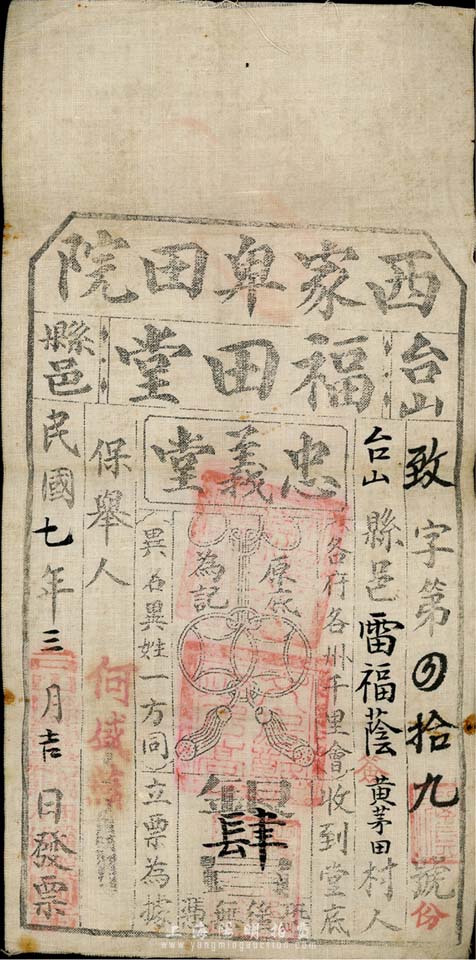 西家卑田院
台山
福田堂
縣邑
忠義堂
致字第四拾九號
份
台山縣邑雷福蔭黄茅田村人
各府各州千里會收到堂底
原底
為記
銀肆
異名異姓一方同立票為據
保舉人
何盛
民國七年三月吉日發票
上海阳明拍卖
www.yangmingauction.com